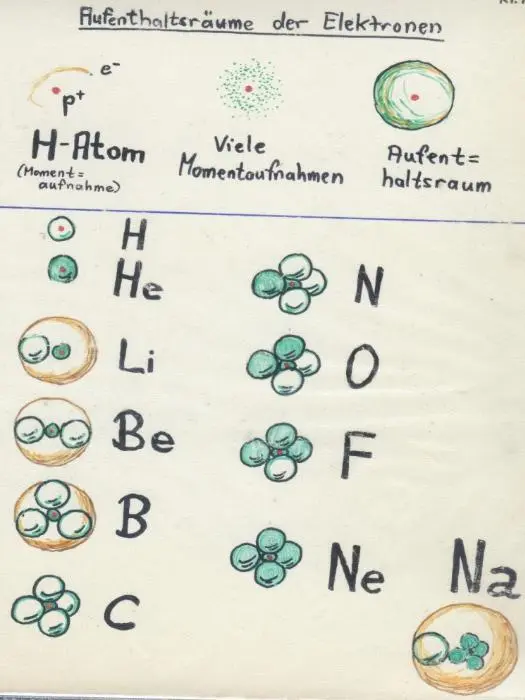 Aufenthaltsräume der Elektronen
e⁻
p⁺
H-Atom
(Moment=
aufnahme)
Viele
Momentaufnahmen
Aufent=
haltsraum
H
He
Li
Be
B
C
N
O
F
Ne
Na